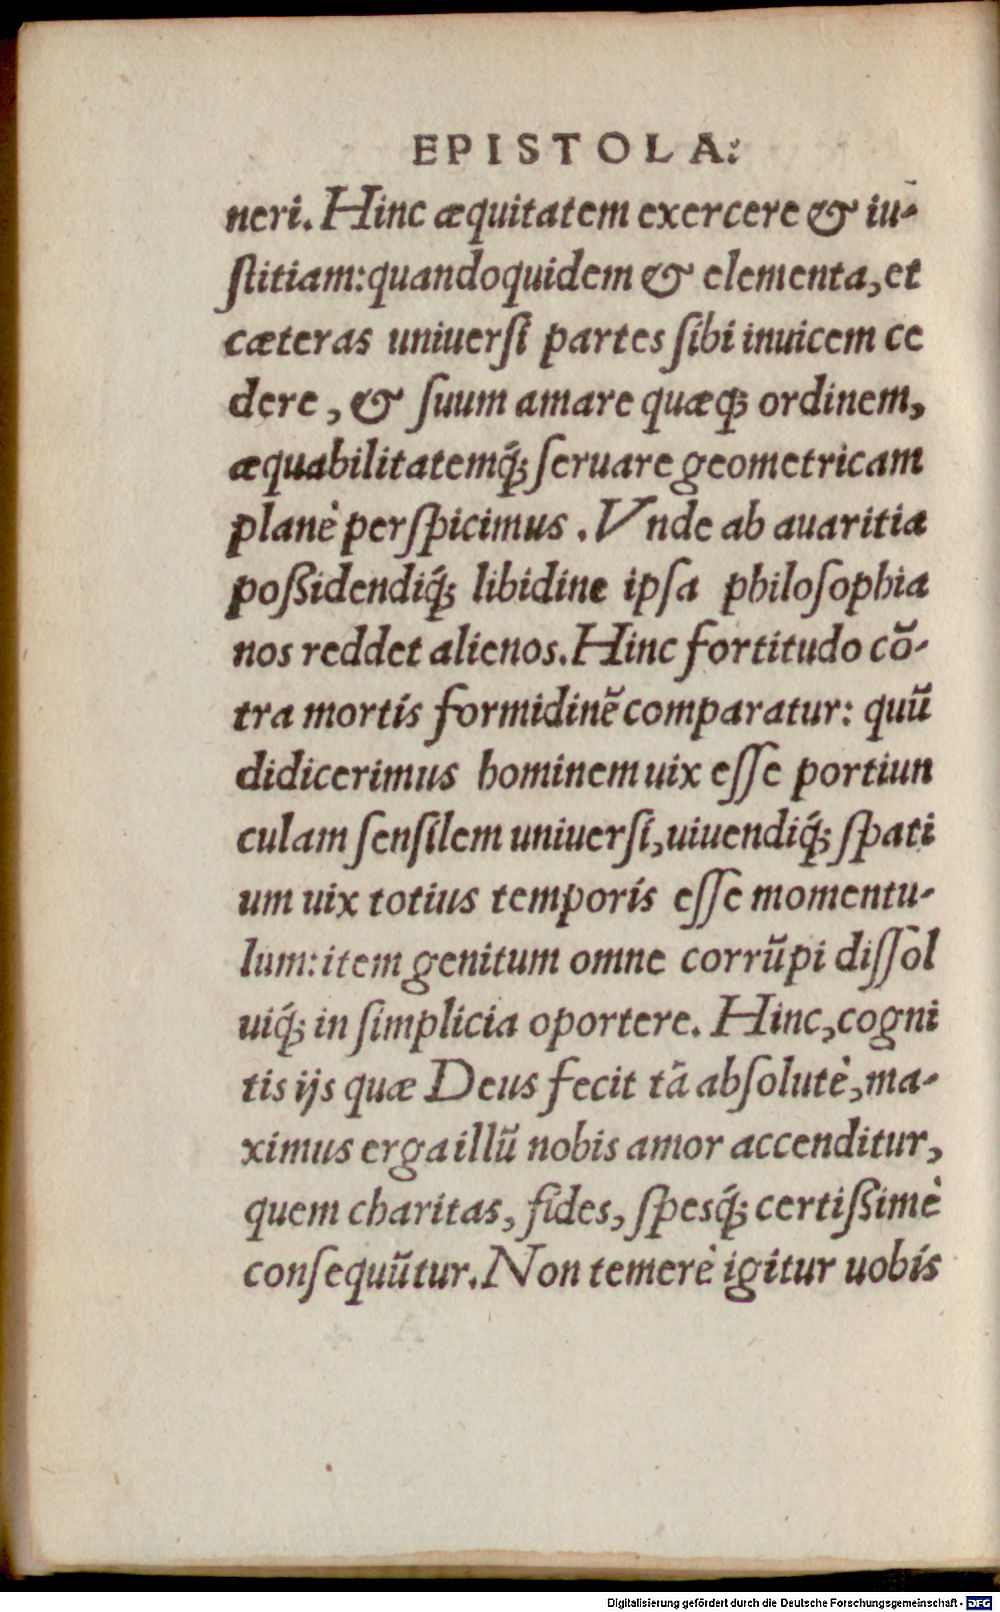 EPISTOLA:
neri. Hinc æquitatem exercere & iu-
ſtitiam: quandoquidem & elementa, et
cæteras uniuerſi partes ſibi inuicem ce
dere, & ſuum amare quæq; ordinem,
æquabilitatemq́; ſeruare geometricam
planè perſpicimus. Vnde ab auaritia
poßidendiq́; libidine ipſa philoſophia
nos reddet alienos. Hinc fortitudo cõ-
tra mortis formidinẽ comparatur: quũ
didicerimus hominem uix eſſe portiun
culam ſenſilem uniuerſi, uiuendiq́; ſpati
um uix totius temporis eſſe momentu-
lum: item genitum omne corrũpi diſſol
uiq́; in ſimplicia oportere. Hinc, cogni
tis ijs quæ Deus fecit tã abſolutè, ma-
ximus erga illũ nobis amor accenditur,
quem charitas, fides, ſpesq́; certißimè
conſequũtur. Non temerè igitur uobis
Digitalisierung gefördert durch die Deutsche Forschungsgemeinschaft - DFG